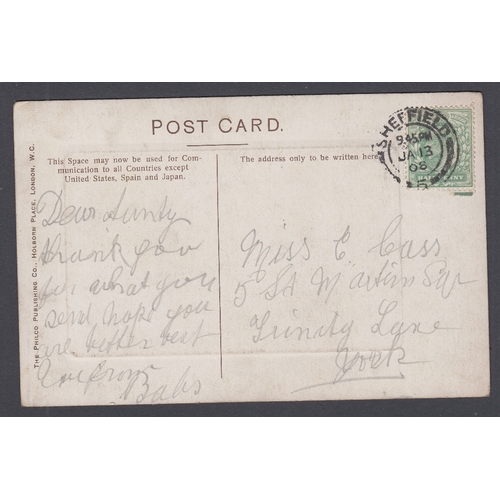 POST CARD.
This Space may now be used for Com-
munication to all Countries except
United States, Spain and Japan.
The address only to be written here
THE PHILCO PUBLISHING CO., HOLBORN PLACE, LONDON, W.C.
SHEFFIELD
9.45 PM
JA 13
08
HALFPENNY
Dear Aunty
thank you
for what you
send hope you
are better best
love from
Babs
Miss C Cass
5 St Martins
Trinity Lane
York